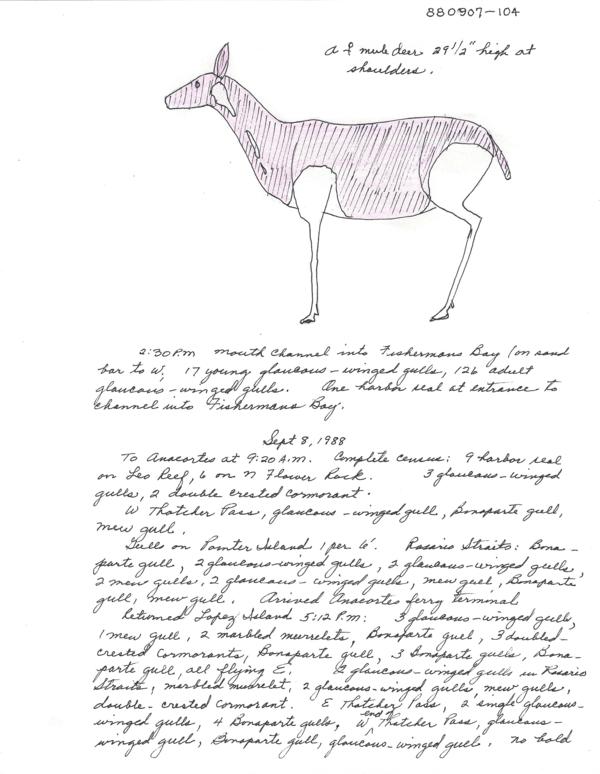 880907-104
A f mule deer 29 1/2" high at
shoulders.
2:30 P.M mouth channel into Fishermans Bay (on sand
bar to W, 17 young glaucous-winged gulls, 126 adult
glaucous-winged gulls. One harbor seal at entrance to
channel into Fishermans Bay.
Sept 8, 1988
To Anacortes at 9:20 A.M. Complete census: 9 harbor seal
on Leo Reef, 6 on N Flower Rock. 3 glaucous-winged
gulls, 2 double crested cormorant.
W Thatcher Pass, glaucous-winged gull, Bonaparte gull,
mew gull.
Gulls on Pointer Island 1 per 6'. Rosario Straits: Bona-
parte gull, 2 glaucous-winged gulls, 2 glaucous-winged gulls,
2 mew gulls, 2 glaucous-winged gulls, mew gull, Bonaparte
gull, mew gull. Arrived Anacortes ferry terminal
Returned Lopez Island 5:12 P.M: 3 glaucous-winged gulls,
1 mew gull, 2 marbled murrelets, Bonaparte gull, 3 doubled-
crested cormorants, Bonaparte gull, 3 Bonaparte gulls, Bona-
parte gull, all flying E. 2 glaucous-winged gulls in Rosario
Straits, marbled murrelet, 2 glaucous-winged gulls, mew gulls,
double-crested cormorant. E Thatcher Pass, 2 single glaucous-
winged gulls, 4 Bonaparte gulls, W end of Thatcher Pass, glaucous-
winged gull, Bonaparte gull, glaucous-winged gull. no bald